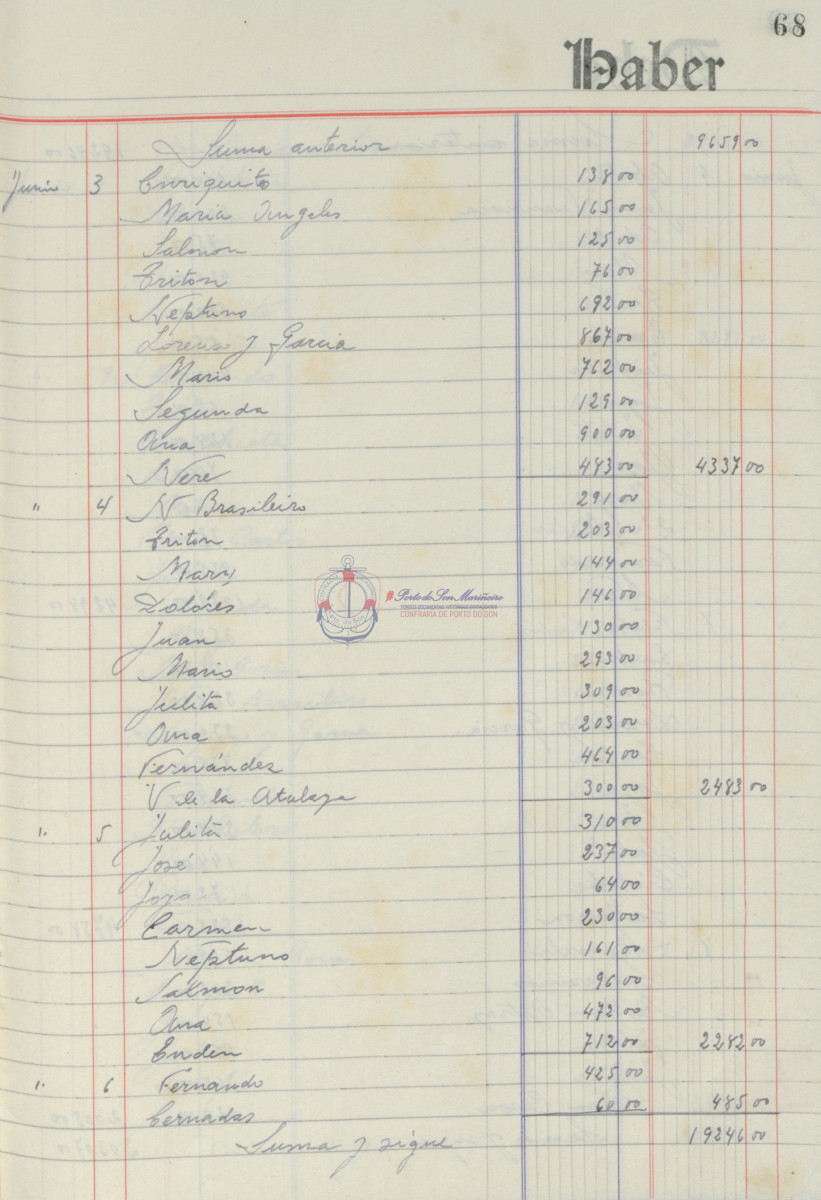 68
Haber
Suma anterior 9659 00
Junio 3 Enriquito 138 00
Maria Angeles 165 00
Salmon 125 00
Triton 76 00
Neptuno 692 00
Lorenzo y Garcia 867 00
Mario 762 00
Segunda 129 00
Ana 900 00
Nere 483 00 4337 00
" 4 N Brasileiro 291 00
Triton 203 00
Mary 144 00
Dolóres 146 00
Juan 130 00
Mario 293 00
Julita 309 00
Ana 203 00
Fernández 464 00
V de la Atalaya 300 00 2483 00
" 5 Julita 310 00
José 237 00
64 00
Carmen 230 00
Neptuno 161 00
Salmon 96 00
Ana 472 00
Enden 712 00 2282 00
" 6 Fernando 425 00
Cernadas 60 00 485 00
Suma y sigue 19246 00
#PortodoSonMariñeiro
CONFRARIA DE PORTO DO SON